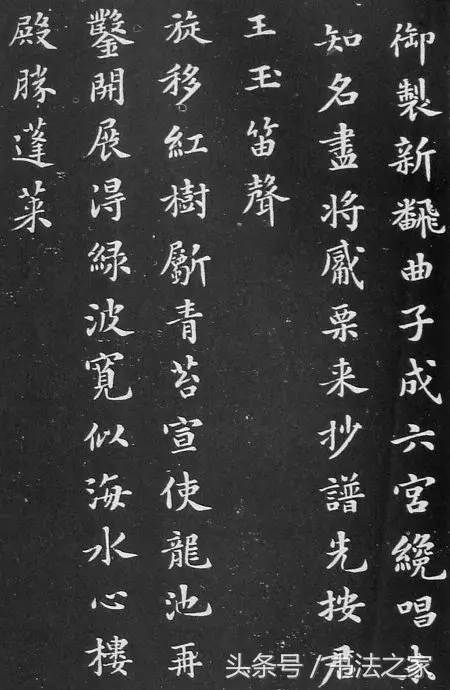 御製新飜曲子成六宮纔唱未
知名盡將觱栗来抄譜先按君
王玉笛聲
旋移紅樹斸青苔宣使龍池再
鑿開展淂緑波寬似海水心樓
殿勝蓬萊
头条号/书法之家